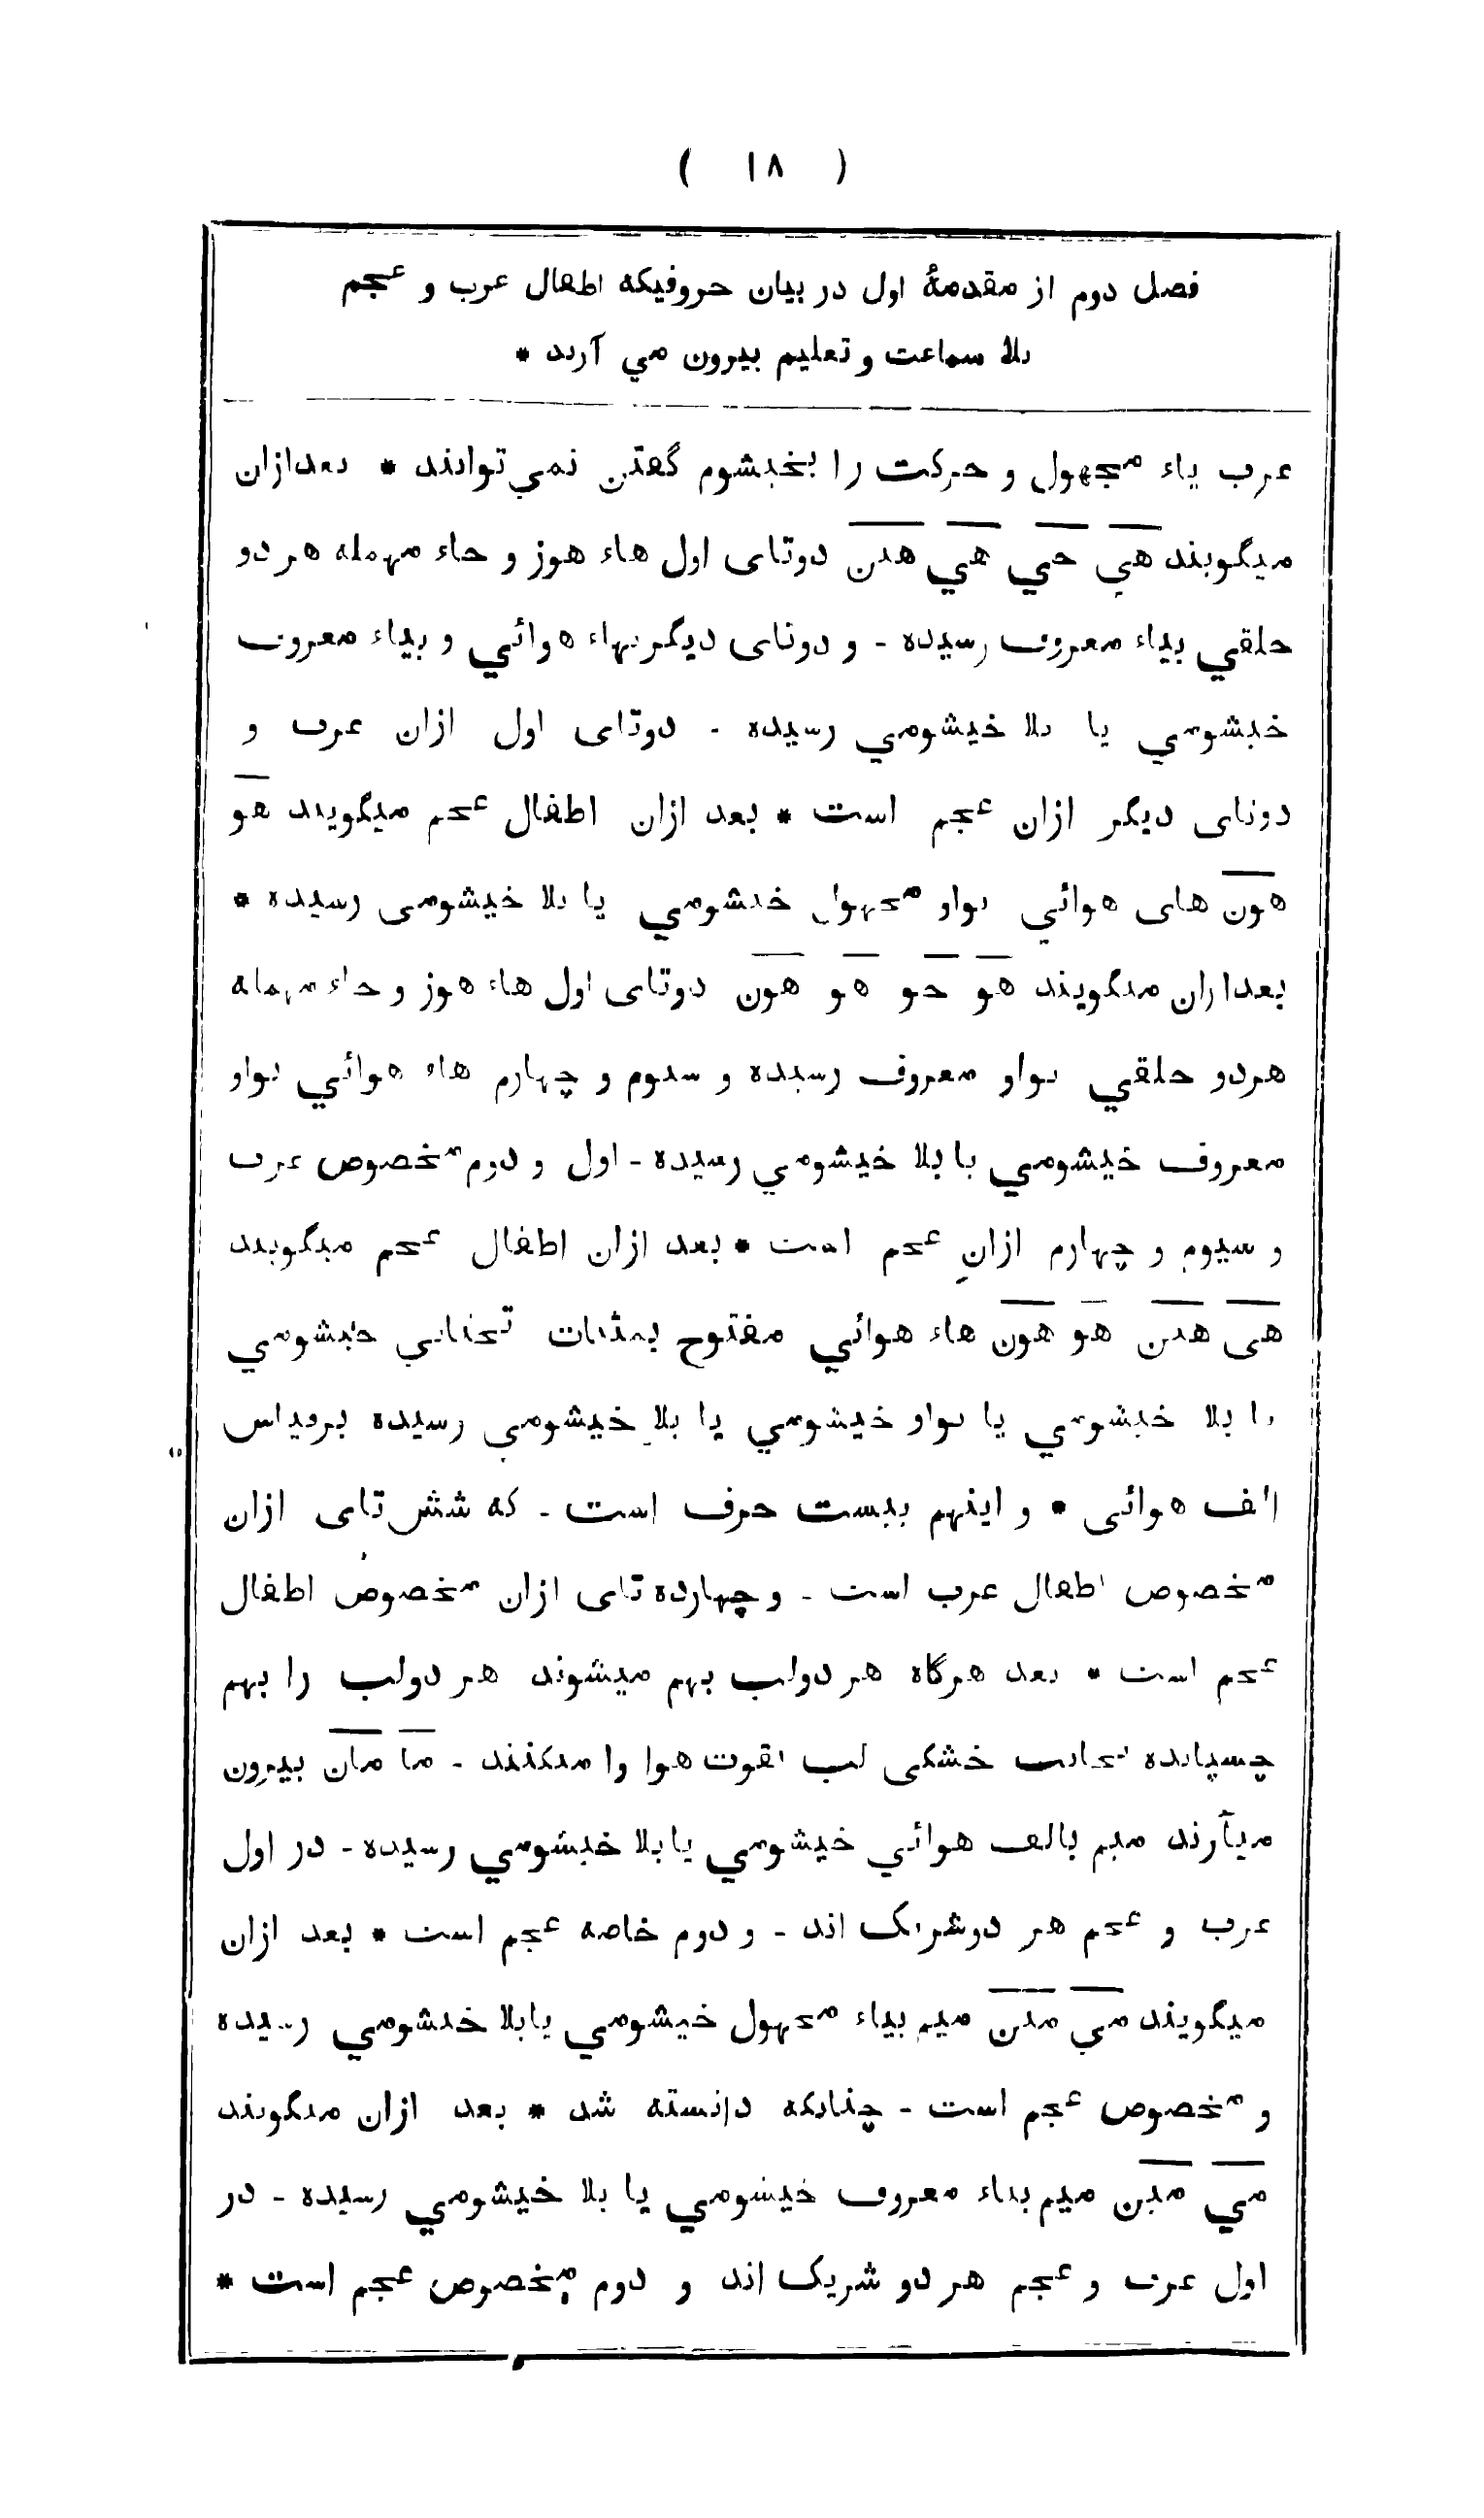 ( ١٨ )
فصل دوم از مقدمهٔ اول در بیان حروفیکه اطفال عرب و عجم
بلا سماعت و تعلیم بیرون می آرند *
عرب یاء مجهول و حرکت را بخیشوم گفتن نمی توانند * بعدازان
میگویند هي حي هي هین دوتای اول هاء هوز و حاء مهمله هر دو
حلقي بیاء معروف رسیده - و دوتای دیگر بهاء هوائي و بیاء معروف
خیشومي یا بلا خیشومي رسیده - دوتای اول ازان عرب و
دوتای دیگر ازان عجم است * بعد ازان اطفال عجم میگویند هو
هون های هوائي بواو مجهول خیشومي یا بلا خیشومی رسیده *
بعدازان میگویند هو حو هو هون دوتای اول هاء هوز و حاء مهمله
هردو حلقي بواو معروف رسیده و سیوم و چهارم هاء هوائي بواو
معروف خیشومي یا بلا خیشومي رسیده - اول و دوم مخصوص عرب
و سیوم و چهارم ازان عجم است * بعد ازان اطفال عجم میگویند
هی هین هو هون هاء هوائي مفتوح بمثنات تحتاني خیشومي
یا بلا خیشومي یا بواو خیشومي یا بلا خیشومي رسیده برقیاس
الف هوائی * و اینهم بیست حرف است - که شش تای ازان
مخصوص اطفال عرب است - و چهارده تای ازان مخصوص اطفال
عجم است * بعد هرگاه هر دولب بهم میشوند هر دولب را بهم
چسپانده بجانب خشکی لب بقوت هوا وا میکنند - ما مان بیرون
میآرند میم بالف هوائي خیشومي یا بلا خیشومي رسیده - در اول
عرب و عجم هر دوشریک اند - و دوم خاصه عجم است * بعد ازان
میگویند مي مین میم بیاء مجهول خیشومي یابلا خیشومي رسیده
و مخصوص عجم است - چنانکه دانسته شد * بعد ازان میگویند
مي مین میم بیاء معروف خیشومي یا بلا خیشومي رسیده - در
اول عرب و عجم هر دو شریک اند و دوم مخصوص عجم است *